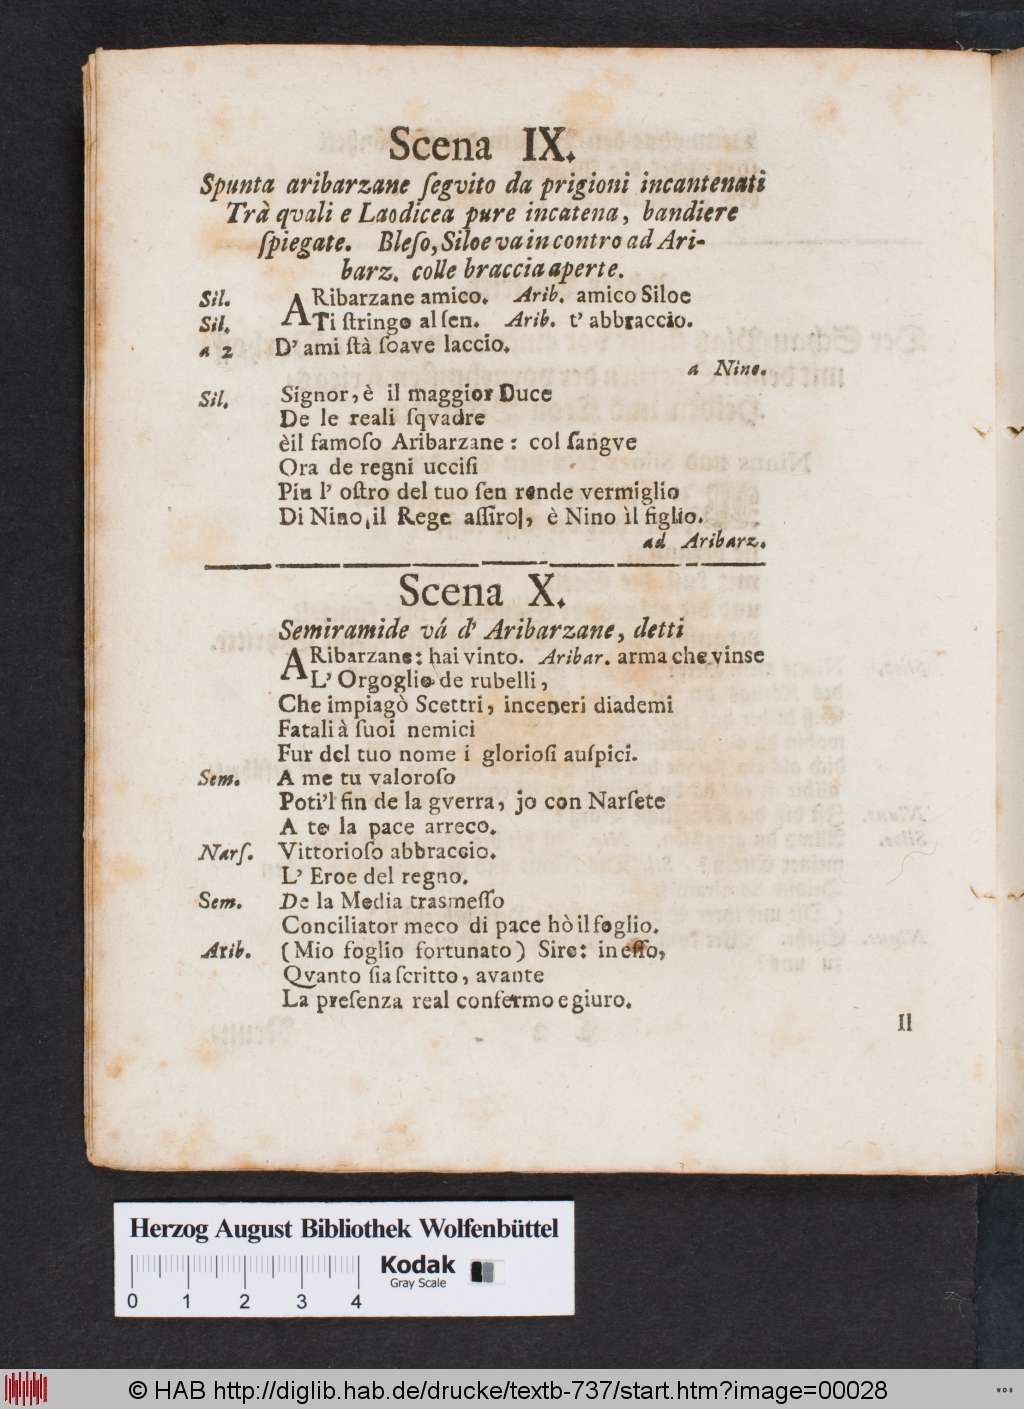 Scena IX.
Spunta aribarzane ſegvito da prigioni incantenati
Trà qvali e Laodicea pure incatena, bandiere
ſpiegate. Bleſo, Siloe va in contro ad Ari-
barz. colle braccia aperte.
Sil. ARibarzane amico. Arib. amico Siloe
Sil. Ti ſtringo al ſen. Arib. t' abbraccio.
a 2 D' ami ſtà ſoave laccio.
a Nino.
Sil. Signor, è il maggior Duce
De le reali ſqvadre
èil famoſo Aribarzane: col ſangve
Ora de regni ucciſi
Piu l' oſtro del tuo ſen rende vermiglio
Di Nino, il Rege aſſiro, è Nino ìl figlio.
ad Aribarz.
Scena X.
Semiramide vá d' Aribarzane, detti
ARibarzane: hai vinto. Aribar. arma che vinse
L' Orgoglio de rubelli,
Che impiagò Scettri, inceneri diademi
Fatali à ſuoi nemici
Fur del tuo nome i glorioſi auſpici.
Sem. A me tu valoroſo
Poti'l fin de la gverra, jo con Narſete
A te la pace arreco.
Narſ. Vittorioſo abbraccio.
L' Eroe del regno.
Sem. De la Media trasmeſſo
Conciliator meco di pace hò il foglio.
Arib. (Mio foglio fortunato) Sire: in eſſo,
Qvanto ſia ſcritto, avante
La preſenza real confermo e giuro.
Il
Herzog August Bibliothek Wolfenbüttel
Kodak
Gray Scale
0 1 2 3 4
© HAB http://diglib.hab.de/drucke/textb-737/start.htm?image=00028